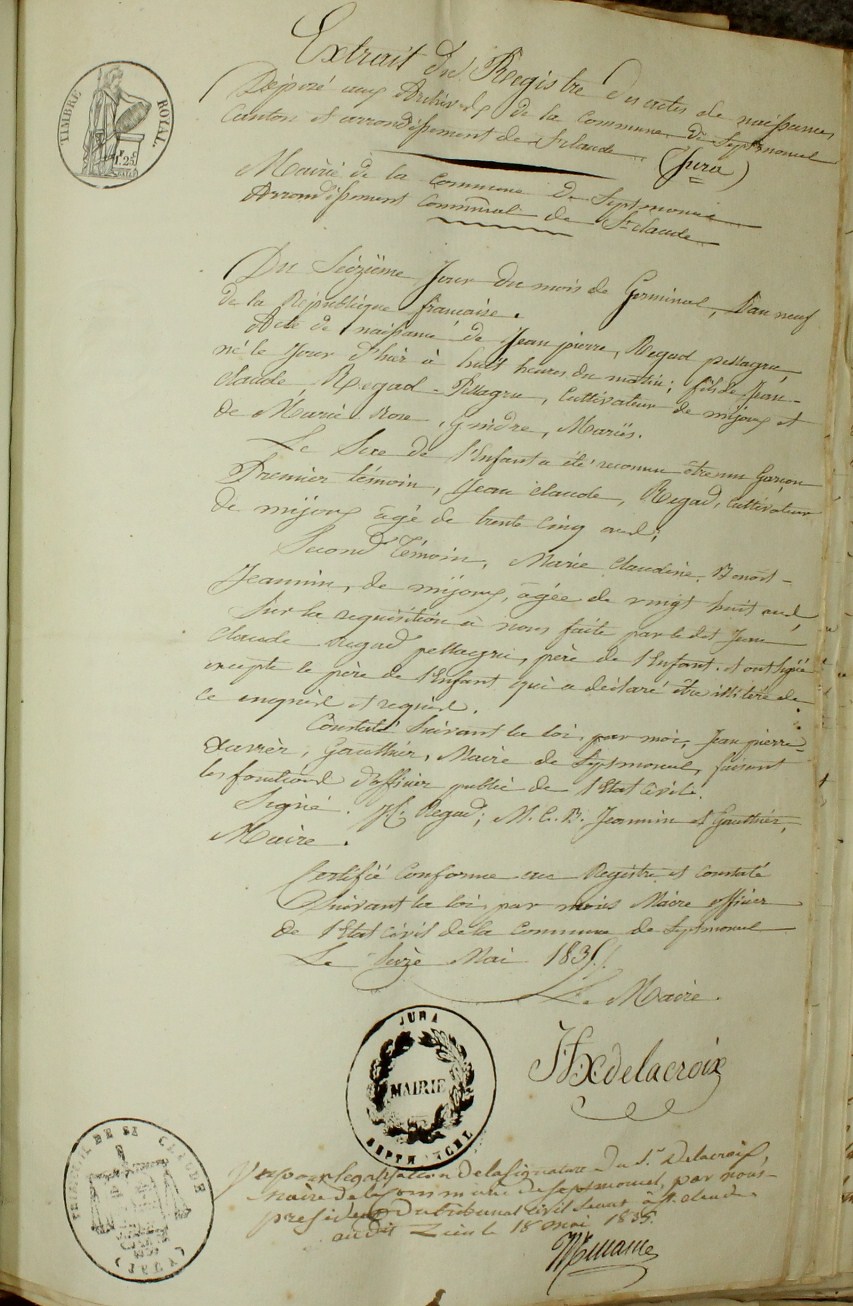 Extrait du Registre des actes de naissances
Déposé aux Archives de la Commune de Septmoncel
Canton et arrondissement de St Claude (Jura)
Mairie de la Commune de Septmoncel
Arrondissement Communal de St Claude
TIMBRE ROYAL
1F 25C
Du Seizième Jour du mois de Germinal, l'an neuf
de la République française.
Acte de naissance de Jean pierre, Regad pellagru,
né le Jour d'hier à huit heures du matin; fils de Jean-
claude, Regad-Pellagru, Cultivateur de mijoux et
de Marie Rose, Gindre, Mariés.
Le Sexe de l'Enfant a été reconnu être un Garçon
Premier témoin, Jean claude, Regad, Cultivateur
de mijoux âgé de trente cinq ans;
Second Témoin, Marie Claudine, Benoit-
Jeannin, de mijoux, âgée de vingt huit ans,
Sur la requisition à nous faite par le dit Jean
Claude regad pellagru, père de l'Enfant. et ont signé
excepté le père de l'Enfant qui a déclaré être illitéré de
ce enquis et requis.
Constaté Suivant la loi, par moi, Jean pierre-
Xavier, Gauthier, Maire de Septmoncel, faisant
les fonctions d'officier public de l'Etat Civil.
Signé. Regad; M. C. B. Jeannin et Gauthier,
Maire.
Certifié Conforme au Registre et constaté
Suivant la loi, par nous Maire officier
de l'Etat Civil de la Commune de Septmoncel
Le Seize Mai 1835.
Le Maire.
JURA
MAIRIE
SEPTMONCEL
delacroix
TRIBUNAL DE ST CLAUDE
(JURA)
Vu pour legalisation de la signature du Sr. Delacroix,
maire de la Commune de Septmoncel, par nous
president du tribunal Civil Séant à St. claude
au dit lieu le 18 mai 1835.